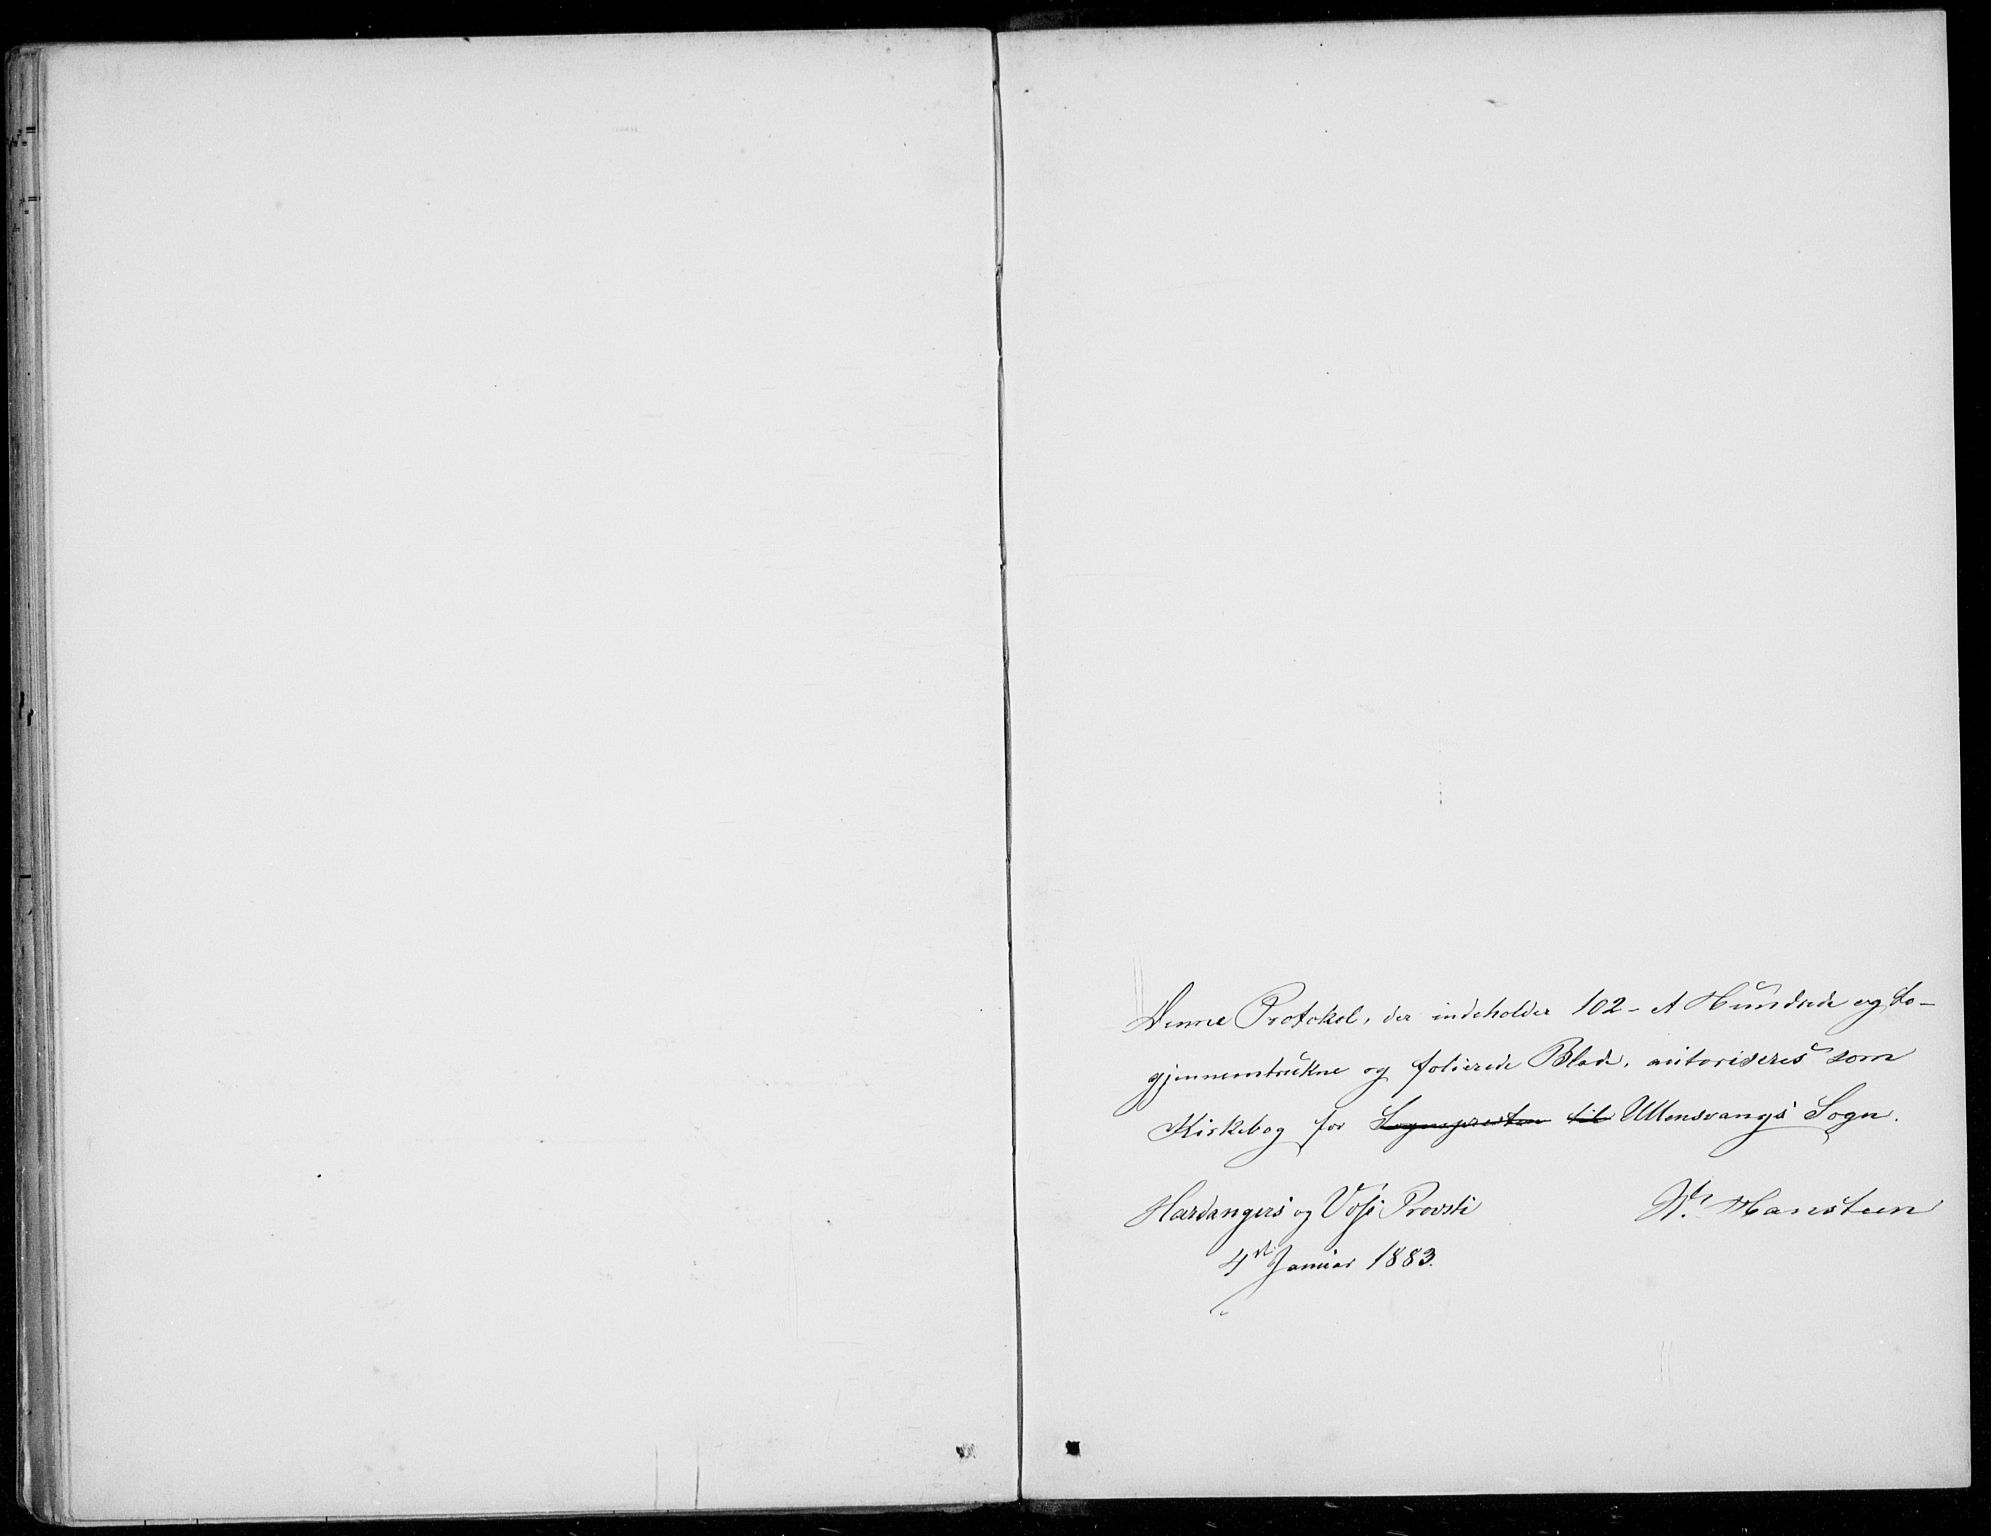 Denne Protokol, der indeholder 102 – et Hundrede og to –
gjennemtrukne og folierede Blade, autoriseres som
Kirkebog for Sognepresten til Ullensvangs Sogn.
Hardangers og Vos's Provsti
W. Hansteen
4de Januar 1883.